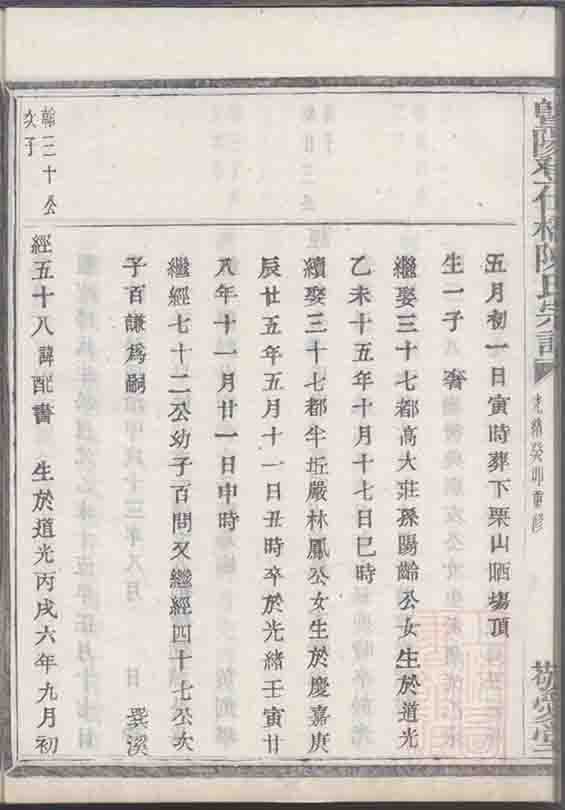 陳氏宗譜
光緒癸卯重修
五月初一日寅時葬下栗山晒場頂
生一子 奢
繼娶三十七都高大莊孫陽齡公女生於道光
乙未十五年十月十七日巳時
續娶三十七都半坵嚴林鳳公女生於慶嘉庚
辰廿五年五月十一日丑時卒於光緒壬寅廿
八年十一月廿一日申時
繼經七十二公幼子百問又繼經四十七公次
子百謙爲嗣 巽溪
翰三十公
次子
經五十八諱配書 生於道光丙戌六年九月初